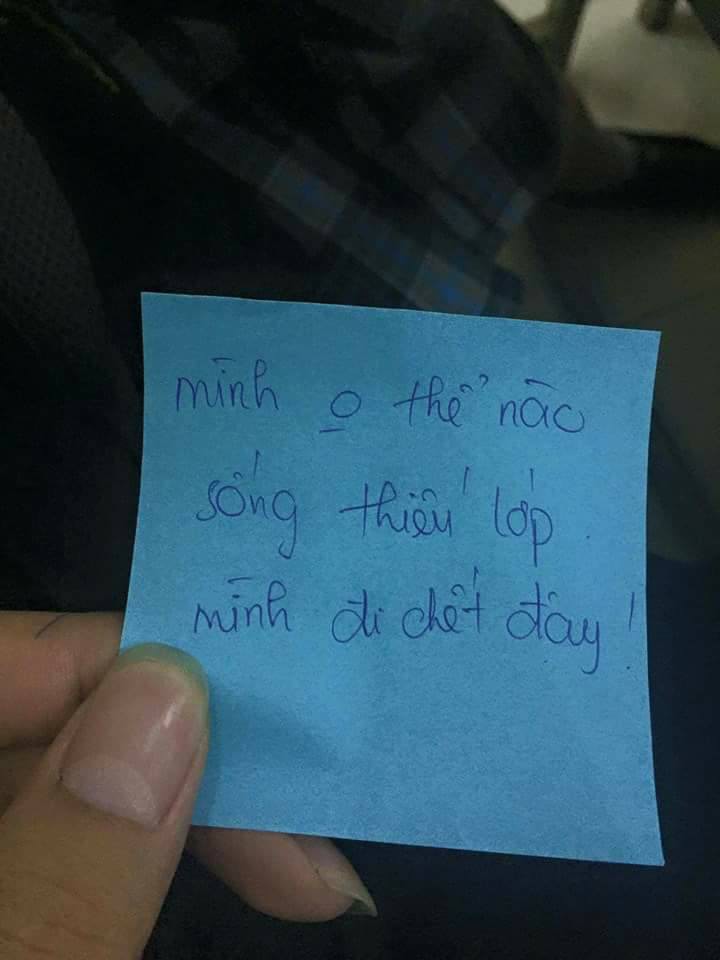 mình o thể nào
sống thiếu lớp.
mình đi chết đây!